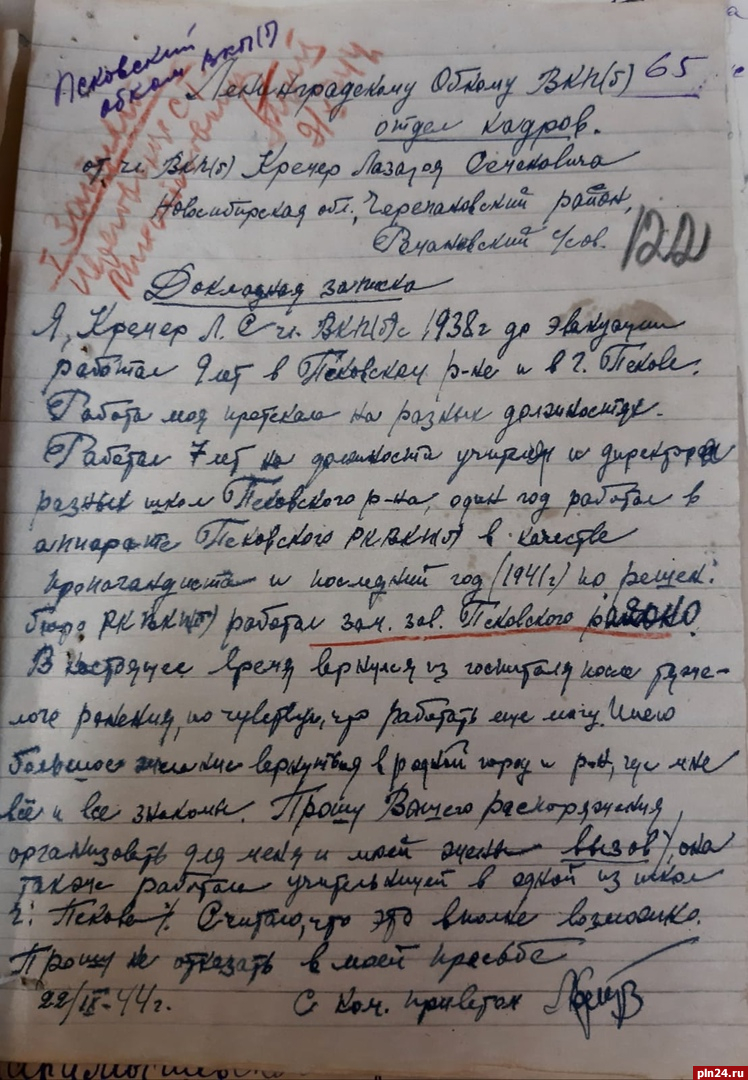 Псковский
обком ВКП(б)
Ленинградскому Обкому ВКП(б) 65
отдел кадров.
от чл. ВКП(б) Кремер Лазаря
Новосибирская обл., Черепановский район,
с/сов. 122
Докладная записка
Я, Кремер Л. С чл. ВКП(б) с 1938 г до эвакуации
работал 9 лет в Псковском р-не и в г. Пскове.
Работа моя протекала на разных должностях.
Работал 7 лет на должности учителя и директора
разных школ Псковского р-на, один год работал в
аппарате Псковского РК ВКП(б) в качестве
пропагандиста и последний год (1941 г) по решен.
бюро РК ВКП(б) работал зам. зав. Псковского районо.
В настоящее время вернулся из госпиталя после тяже-
лого ранения, но чувствую, что работать еще могу. Имею
большое желание вернуться в родной город и р-он, где мне
всё и все знакомы. Прошу Вашего распоряжения
организовать для меня и моей жены вызов), она
также работала учительницей в одной из школ
г. Пскова). Считаю, что это вполне возможно.
Прошу не отказать в моей просьбе
22/IX-44 г. С ком. приветом
pln24.ru